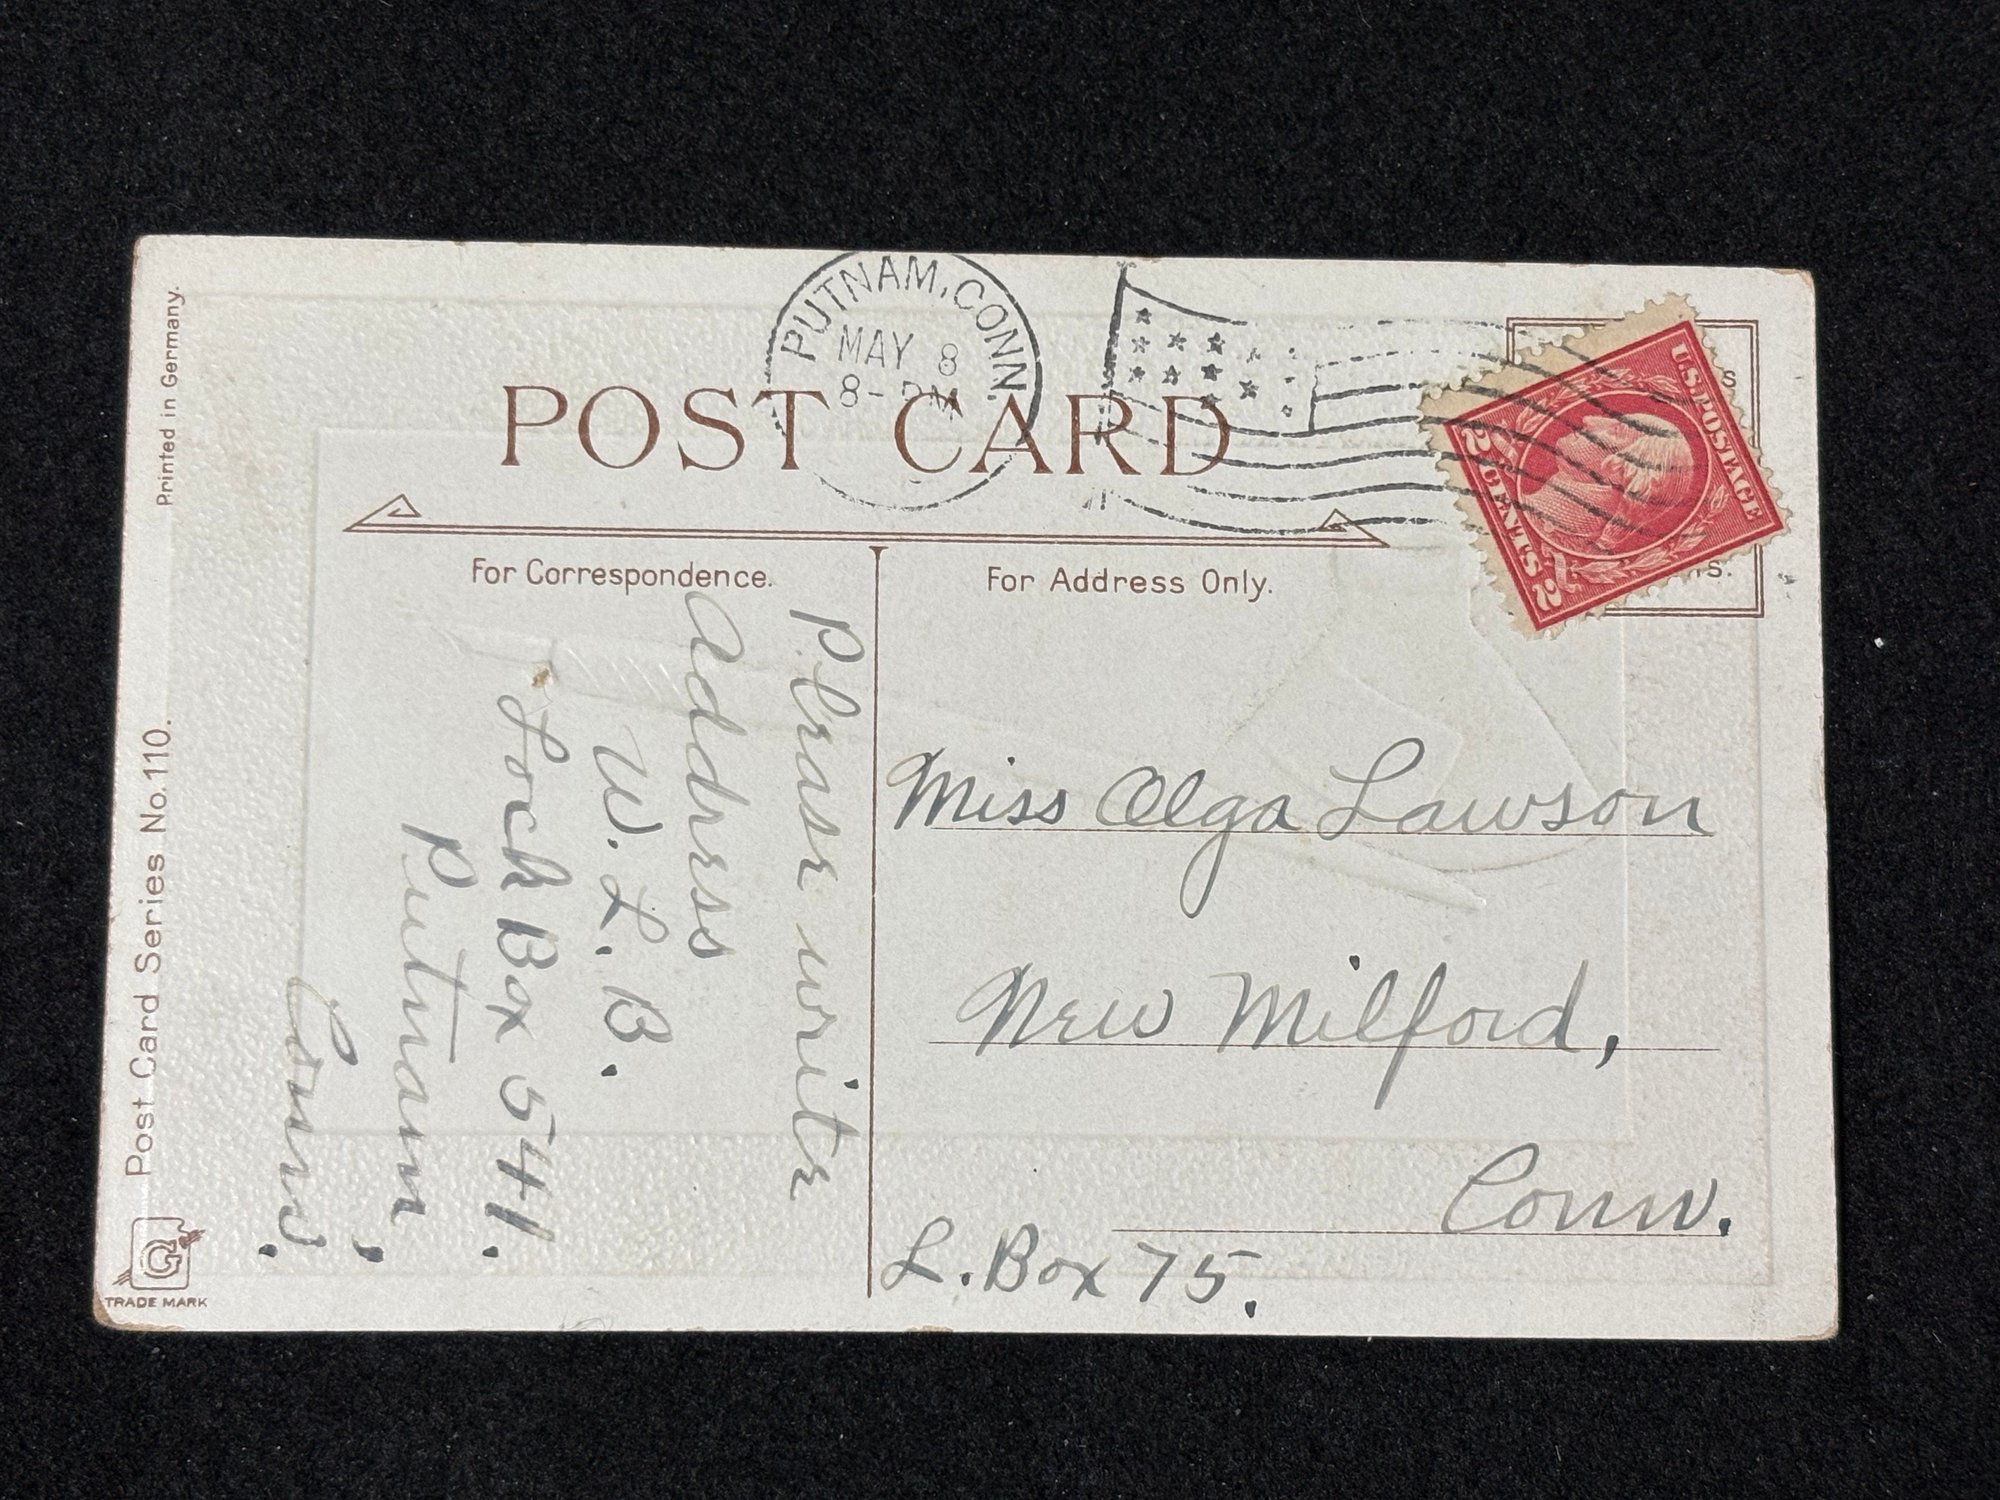 PUTNAM, CONN.
MAY 8
8- PM
POST CARD
U.S. POSTAGE
2 CENTS 2
For Correspondence.
For Address Only.
Please write
address
W. L. B.
Lock Box 541.
Putnam,
Conn.
Miss Olga Lawson
New Milford,
Conn.
L. Box 75.
Printed in Germany.
Post Card Series No. 110.
G
TRADE MARK